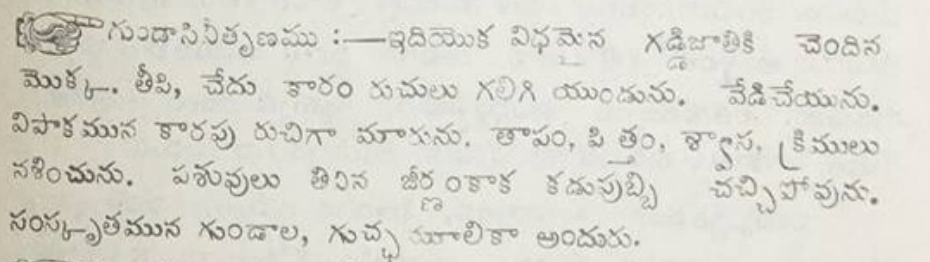 గుండాసినీతృణము :—ఇదియొక విధమైన గడ్డిజాతికి చెందిన
మొక్క. తీపి, చేదు కారం రుచులు గలిగి యుండును. వేడిచేయును.
విపాకమున కారపు రుచిగా మారును. తాపం, పిత్తం, శ్వాస, క్రిములు
నశించును. పశువులు తినిన జీర్ణంకాక కడుపుబ్బి చచ్చిపోవును.
సంస్కృతమున గుండాల, గుచ్ఛమూలికా అందురు.